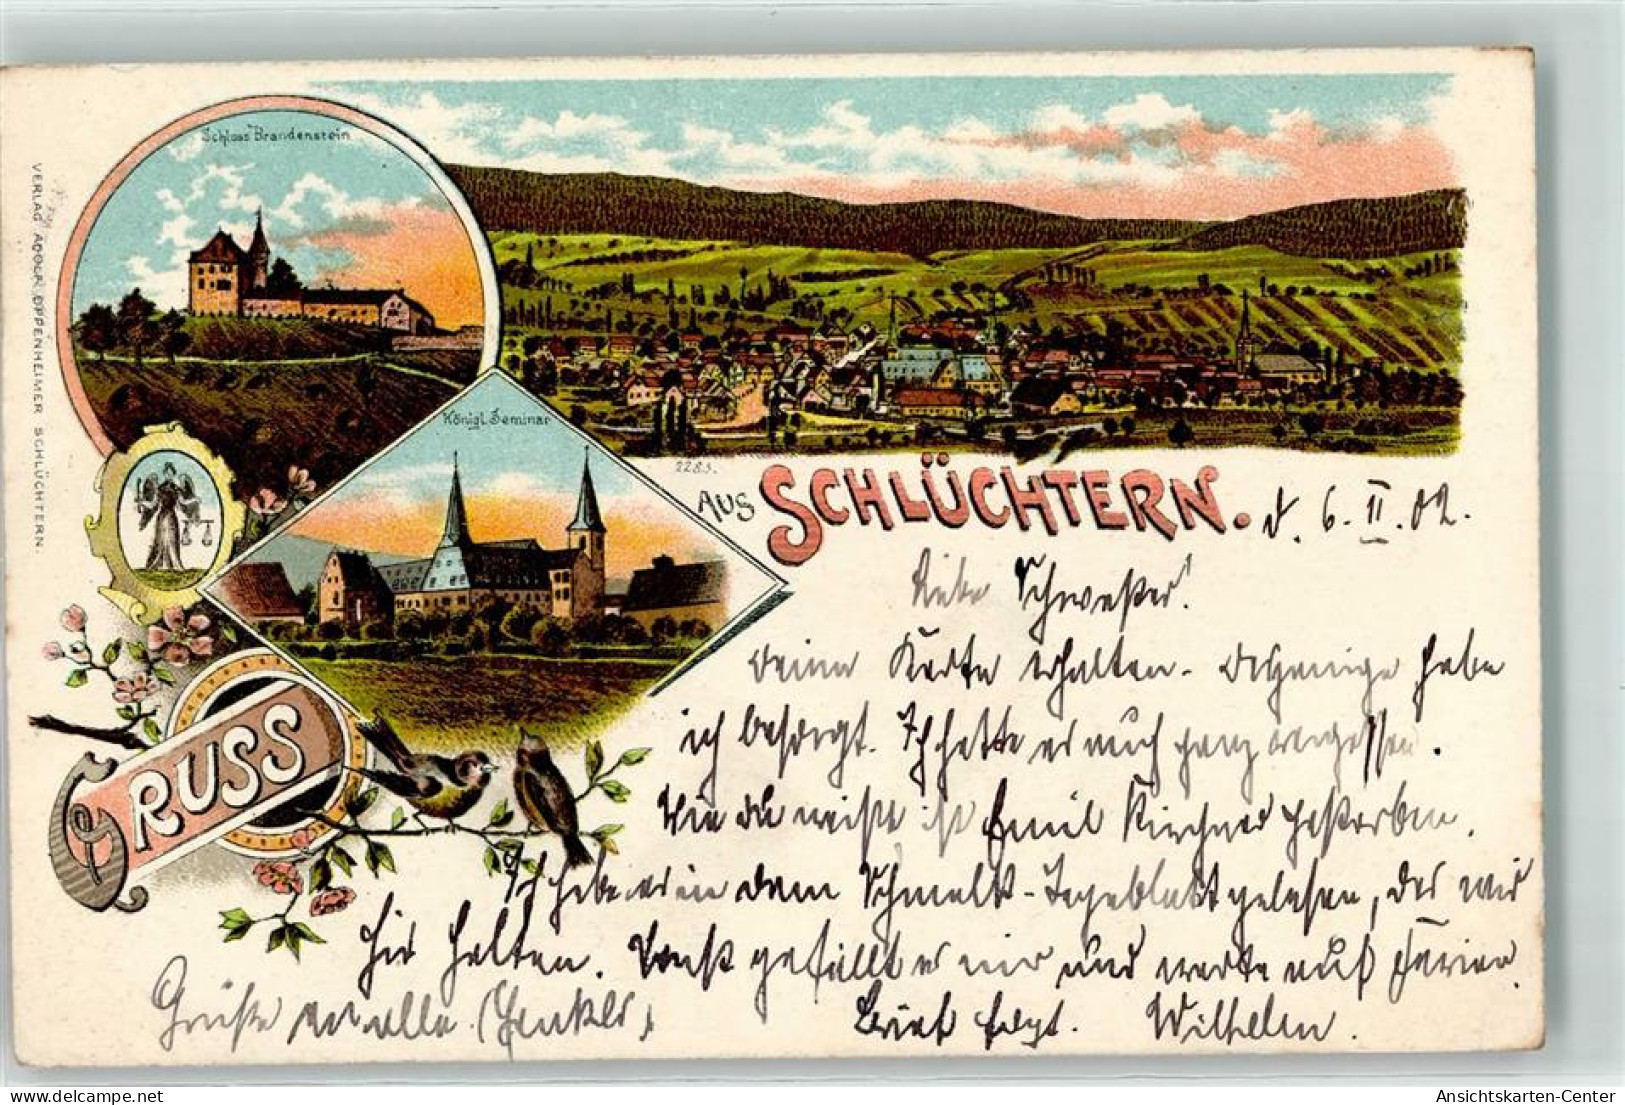 Schloss Brandenstein
VERLAG ADOLF OPPENHEIMER SCHLÜCHTERN.
Königl. Seminar
2283.
GRUSS
AUS SCHLÜCHTERN. d. 6. II. 02.
Liebe Schwester!
Deine Karte erhalten. Dasjenige habe
ich besorgt. Ich hatte es auch ganz vergessen.
Wie du weißt ist Emil Kirchner gestorben.
Ich habe es in dem Tageblatt gelesen, das wir
hier halten. Sonst gefällt es mir und warte auf Ferien.
Grüße an alle
Brief folgt. Wilhelm.
Ansichtskarten-Center